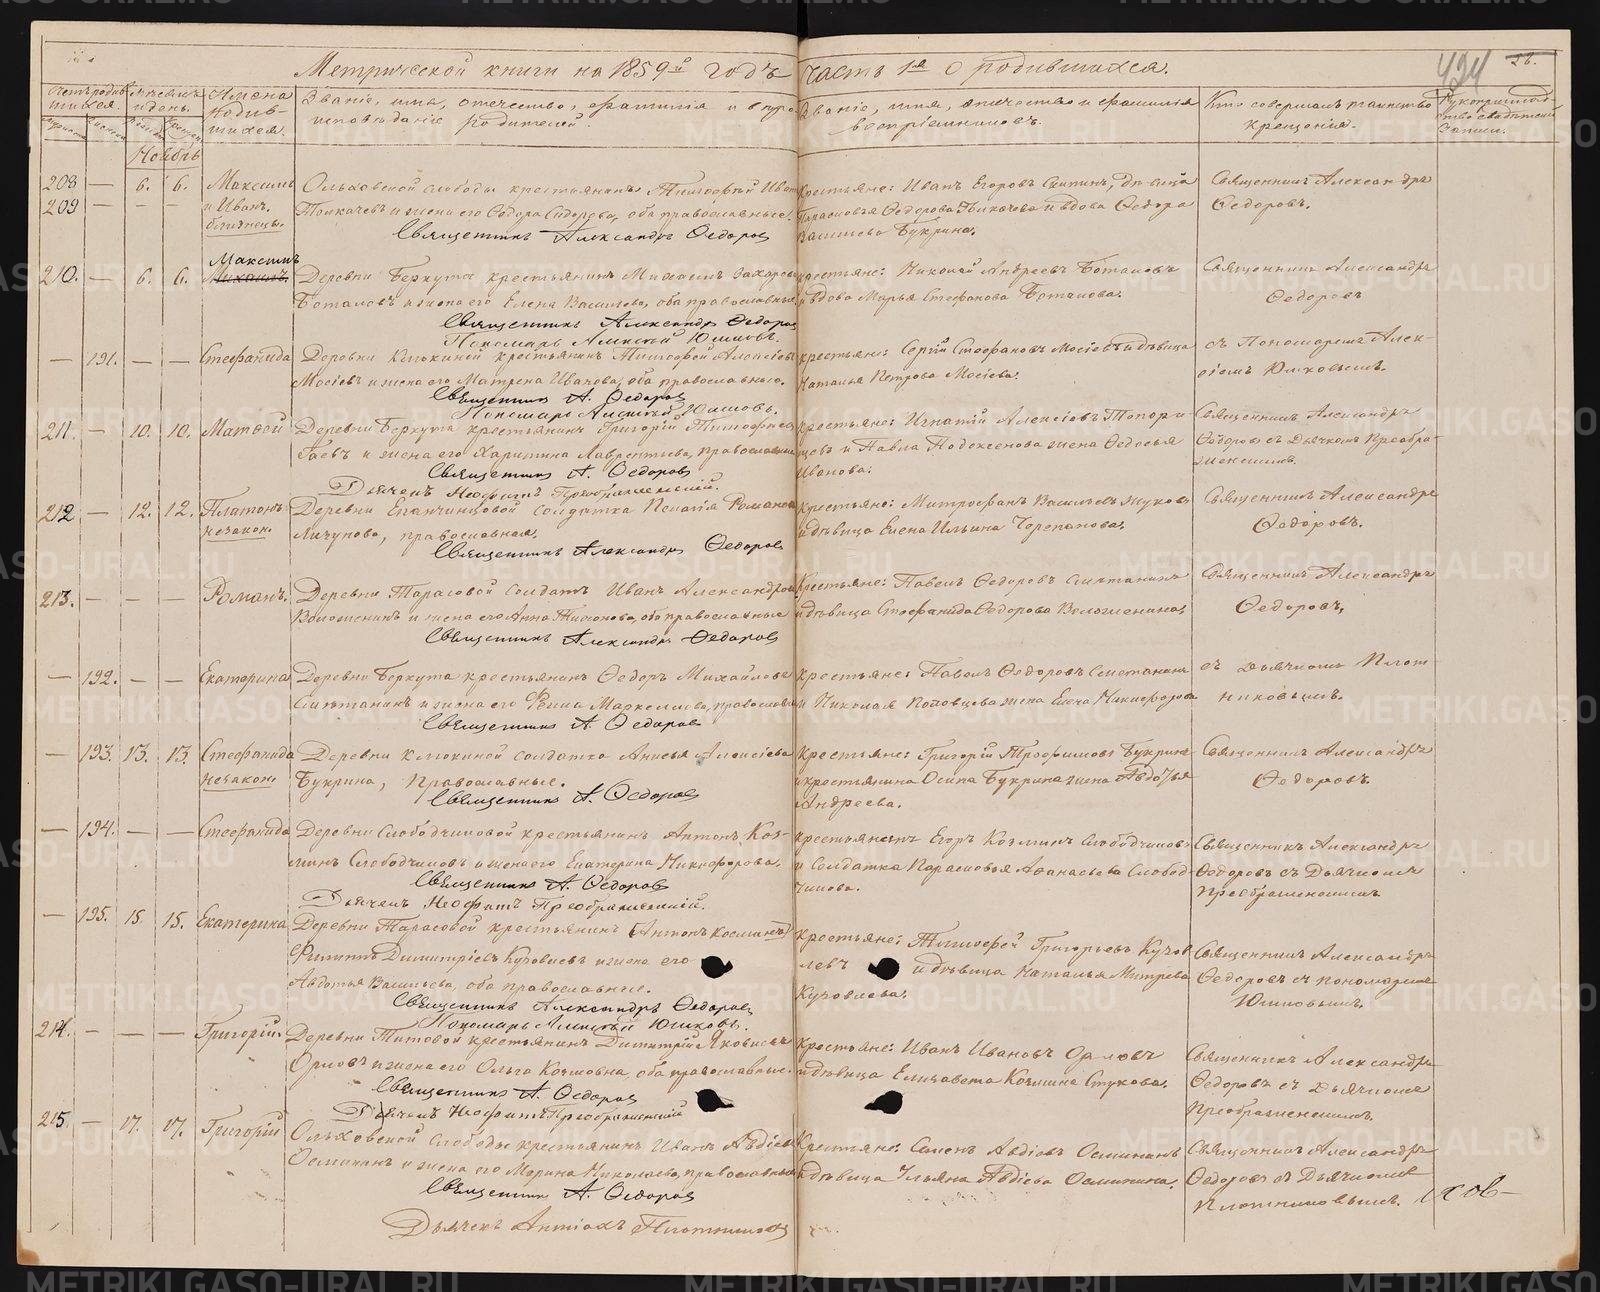 Метрической книги на 1859й годъ часть 1я о родившихся.
434
Счетъ родив-
шихся.
Мѣсяцъ
и день.
Имена
родив-
шихся.
Званіе, имя, отечество, фамилія и
исповѣданіе родителей.
Званіе, имя, отечество и фамилія
воспріемниковъ.
Кто совершалъ таинство
крещенія.
Рукоприклад-
ство свидѣтелей
записи.
Ноябрь
208 — 6. 6. Максимъ
209 — — — и Иванъ.
близнецы.
Ольховской слободы крестьянинъ Тимофей Иван
Толкачевъ и жена его Федора Сидорова, оба православные.
Священникъ Александръ Федоровъ
Крестьяне: Иванъ Егоровъ Скипинъ, дѣвица
Парасковья Федорова Толкачева и вдова Федора
Букрина.
Священникъ Александръ
Федоровъ.
210. — 6. 6. Максимъ
Михаилъ.
Деревни Беркута крестьянинъ Михаилъ Захаровъ
Боталовъ и жена его Елена Васильева, оба православные.
Священникъ Александръ Федоровъ
Пономарь Алексѣй Юшковъ.
крестьяне: Николай Андреевъ Боталовъ
и вдова Марья Стефанова Боталова.
Священникъ Александръ
Федоровъ
— 191. — — Стефанида
Деревни Клюкиной крестьянинъ Тимофей Алексѣевъ
Мосѣевъ и жена его Матрена Иванова, оба православные.
Священникъ А. Федоровъ
Пономарь Алексѣй Юшковъ.
крестьяне: Сергѣй Стефановъ Мосѣевъ и дѣвица
Наталья Петрова Мосѣева.
съ Пономаремъ Алек-
сѣемъ Юшковымъ.
211. — 10. 10. Матвей
Деревни Беркута крестьянинъ Григорій Тимофеевъ
Гаевъ и жена его Харитина Лаврентьева, православные
Священникъ А. Федоровъ
Дьячекъ Неофитъ Преображенскій.
крестьяне: Игнатій Алексѣевъ Топори-
щевъ и Павла Подоксенова жена Федосья
Иванова.
Священникъ Александръ
Федоровъ съ Дьячкомъ Преобра-
женскимъ.
212 — 12. 12. Платонъ
незакон.
Деревни Епанчинцовой солдатка Пелагія Романова
Личупова, православная.
Священникъ Александръ Федоровъ
крестьяне: Митрофанъ Васильевъ Жуковъ
и дѣвица Елена Ильина Черепанова.
Священникъ Александръ
Федоровъ.
213. — — — Романъ.
Деревни Тарасовой солдатъ Иванъ Александровъ
Воложенинъ и жена его Анна Тихонова, оба православные
Священникъ Александръ Федоровъ
Крестьяне: Павелъ Федоровъ Сметанинъ
и дѣвица Стефанида Федорова Воложенина.
Священникъ Александръ
Федоровъ.
— 192. — — Екатерина
Деревни Беркута крестьянинъ Федоръ Михайловъ
Сметанинъ и жена его Фекла Маркелова, православные
Священникъ А. Федоровъ
крестьяне: Павелъ Федоровъ Сметанинъ
и Николая Поповцева жена Елена Никифорова
съ Дьячкомъ Плот-
никовымъ.
— 193. 13. 13. Стефанида
незакон.
Деревни Клюкиной солдатка Анисья Алексѣева
Букрина, Православные.
Священникъ А. Федоровъ
Крестьяне: Григорій Трофимовъ Букринъ
и крестьянина Осипа Букрина жена Авдотья
Андреева.
Священникъ Александръ
Федоровъ.
— 194. — — Стефанида
Деревни Слободчиковой крестьянинъ Антонъ Коз-
минъ Слободчиковъ и жена его Екатерина Никифорова.
Священникъ А. Федоровъ
Дьячекъ Неофитъ Преображенскій.
крестьянинъ Егоръ Козминъ Слободчиковъ
и Солдатка Парасковья Афанасьева Слобод-
чикова.
Священникъ Александръ
Федоровъ съ Дьячкомъ
Преображенскимъ
— 195. 15. 15. Екатерина
Деревни Тарасовой крестьянинъ (Антонъ Косминъ)
Филиппъ Димитріевъ Куковлевъ и жена его
Авдотья Васильева, оба православные.
Священникъ Александръ Федоровъ
Пономарь Алексѣй Юшковъ.
крестьяне: Тимофей Григорьевъ Куков-
левъ и дѣвица Наталья Митрева
Куковлева.
Священникъ Александръ
Федоровъ съ пономаремъ
Юшковымъ.
214. — — — Григорій.
Деревни Титовой крестьянинъ Димитрій Яковлевъ
Орловъ и жена его Ольга Козмовна, оба православные.
Священникъ А. Федоровъ
Дьячекъ Неофитъ Преображенскій
Крестьяне: Иванъ Ивановъ Орловъ
и дѣвица Елизавета Козмина Стукова.
Священникъ Александръ
Федоровъ съ Дьячкомъ
Преображенскимъ.
215. — 17. 17. Григорій
Ольховской слободы крестьянинъ Иванъ Авдѣевъ
Осминин и жена его Марина Николаева, православные
Священникъ А. Федоровъ
Дьячекъ Антіохъ Плотниковъ
Крестьяне: Семенъ Авдѣевъ Осмининъ
и дѣвица Ульяна Авдѣева Осминина.
Священникъ Александръ
Федоровъ съ Дьячкомъ
Плотниковымъ.
METRIKI.GASO-URAL.RU